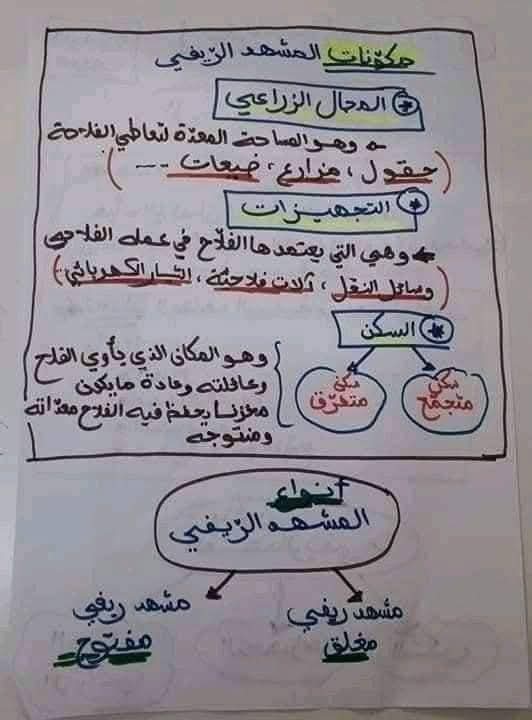 مكوّنات المشهد الرّيفي
* المجال الزراعي
وهو المساحة المعدّة لتعاطي الفلاحة
(حقول، مزارع، ضيعات ...)
* التجهيزات
وهي التي يعتمدها الفلّاح في عمله الفلاحي
(وسائل النقل، آلات فلاحيّة، التيار الكهربائي..)
* السكن
سكن متجمّع
سكن متفرّق
وهو المكان الذي يأوي الفلاح
وعائلته وعادة ما يكون
مخزنا يحفظ فيه الفلاح معدّاته
ومنتوجه
أنواع
المشهد الرّيفي
مشهد ريفي
مغلق
مشهد ريفي
مفتوح